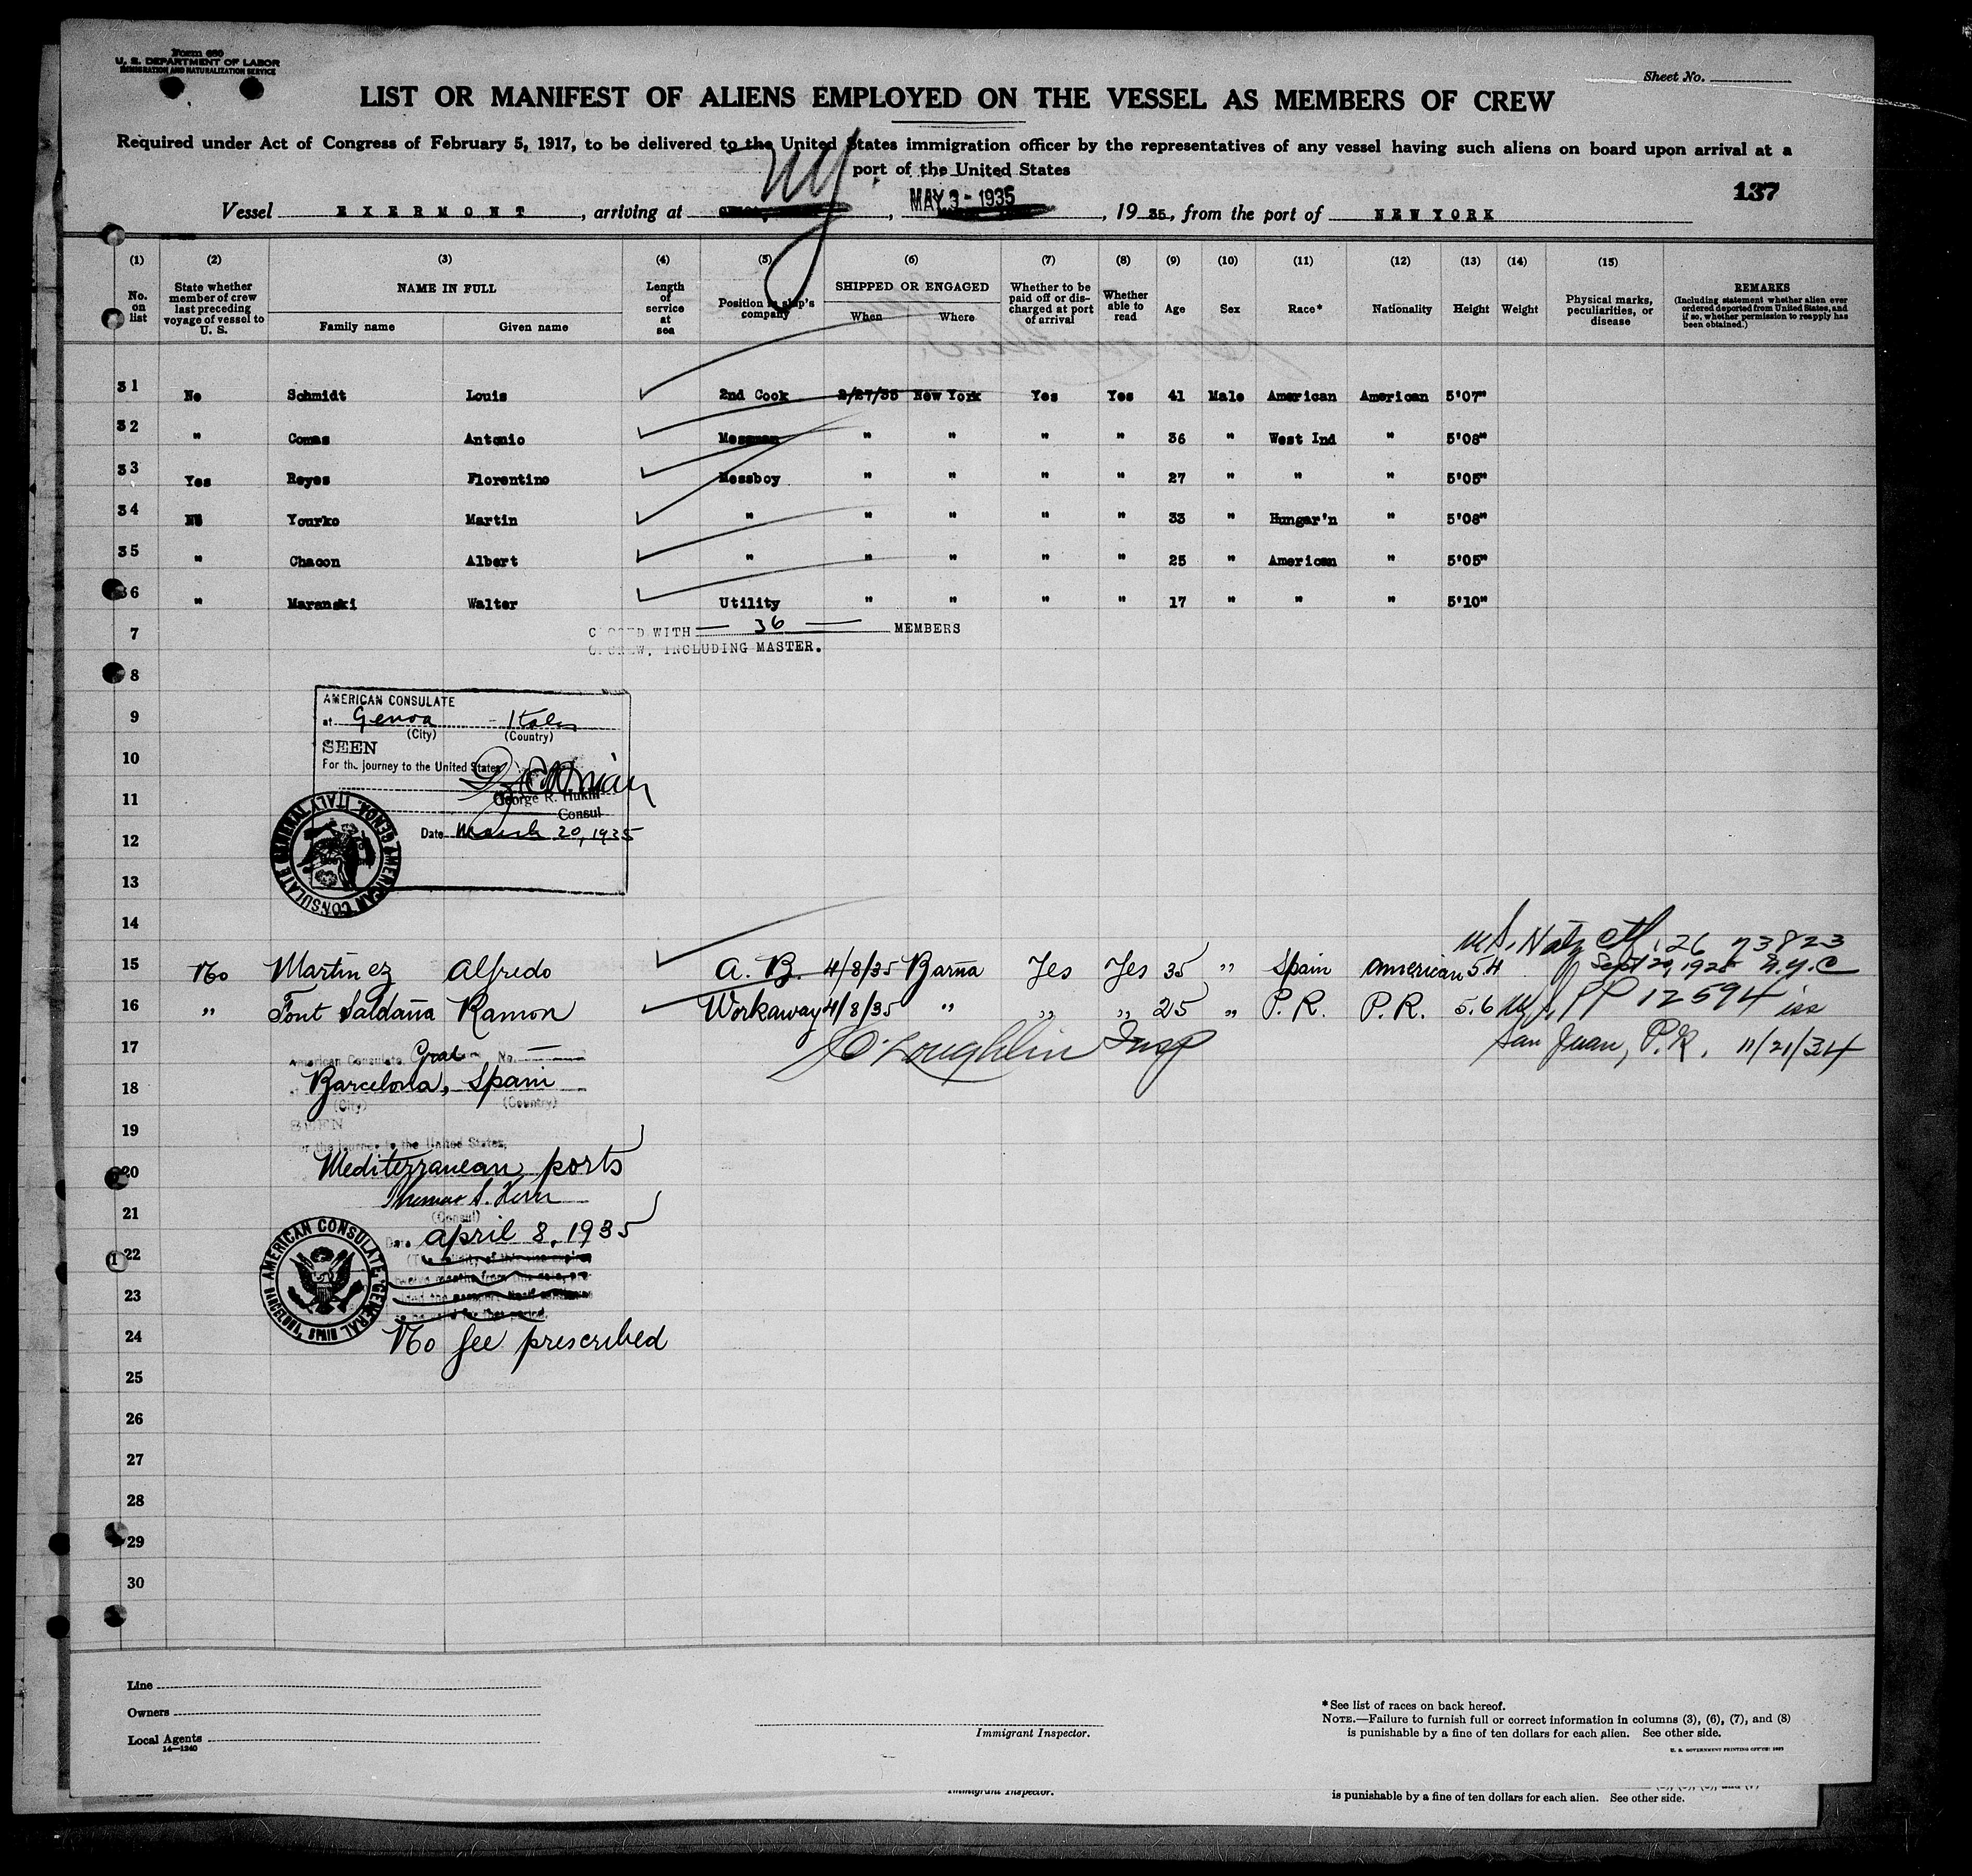 Form 680
U. S. DEPARTMENT OF LABOR
IMMIGRATION AND NATURALIZATION SERVICE
Sheet No.
LIST OR MANIFEST OF ALIENS EMPLOYED ON THE VESSEL AS MEMBERS OF CREW
Required under Act of Congress of February 5, 1917, to be delivered to the United States immigration officer by the representatives of any vessel having such aliens on board upon arrival at a
port of the United States
137
Vessel EXERMONT, arriving at NY, MAY 3 - 1935, 19 35, from the port of NEW YORK
(1) (2) (3) (4) (5) (6) (7) (8) (9) (10) (11) (12) (13) (14) (15)
No. on list
State whether member of crew last preceding voyage of vessel to U. S.
NAME IN FULL
Family name Given name
Length of service at sea
Position in ship's company
SHIPPED OR ENGAGED
When Where
Whether to be paid off or discharged at port of arrival
Whether able to read
Age Sex Race* Nationality Height Weight
Physical marks, peculiarities, or disease
REMARKS
(Including statement whether alien ever ordered deported from United States, and if so, whether permission to reapply has been obtained.)
31 No Schmidt Louis 2nd Cook 2/27/35 New York Yes Yes 41 Male American American 5'07"
32 " Comas Antonio Messman " " " " 36 " West Ind " 5'08"
33 Yes Reyes Florentino Messboy " " " " 27 " " " 5'05"
34 No Yourko Martin " " " " " 33 " Hungar'n " 5'08"
35 " Chacon Albert " " " " " 25 " American " 5'05"
36 " Maranski Walter Utility " " " " 17 " " " 5'10"
7 CLOSED WITH 36 MEMBERS
OF CREW, INCLUDING MASTER.
8
AMERICAN CONSULATE
9 at Genoa Italy
(City) (Country)
SEEN
10 For the journey to the United States
11 George R. Hukill
Consul
12 Date March 20, 1935
AMERICAN CONSULATE GENERAL GENOA, ITALY
13
14
U.S. Natz Ctf. 26 73823
15 No Martinez Alfredo A. B. 4/8/35 Barna Yes Yes 35 " Spain American 5.4 Sept 20, 1928 N.Y.C
16 " Font Saldaña Ramon Workaway 4/8/35 " " " 25 " P. R. P. R. 5.6 U.S. PP 12594 iss
San Juan, P.R. 11/21/34
O'Loughlin Insp
17 American Consulate Gral No.
18 Barcelona, Spain
(City) (Country)
19 SEEN
For the journey to the United States,
20 Mediterranean ports
21 (Consul)
Date April 8, 1935
22 (The validity of this visa expires
twelve months from this date, pro-
23 vided the passport itself continues
to be valid for that period.
AMERICAN CONSULATE GENERAL BARCELONA, SPAIN
24 No fee prescribed
25
26
27
28
29
30
Line
Owners
Local Agents
14—1240
Immigrant Inspector.
* See list of races on back hereof.
NOTE.—Failure to furnish full or correct information in columns (3), (6), (7), and (8)
is punishable by a fine of ten dollars for each alien. See other side.
Immigrant Inspector.
is punishable by a fine of ten dollars for each alien. See other side.